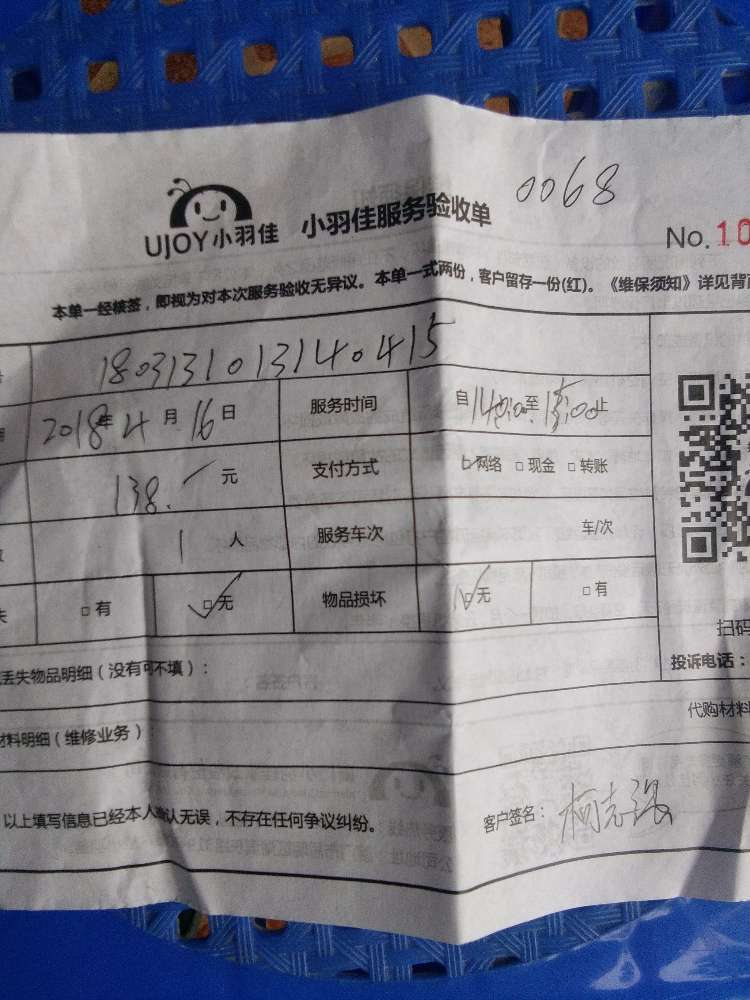 0068
UJOY小羽佳 小羽佳服务验收单
No.10
本单一经核签，即视为对本次服务验收无异议。本单一式两份，客户留存一份(红)。《维保须知》详见背
1803131013140415
2018年4月16日 服务时间 自14:00至15:00止
138. 元 支付方式 网络 □现金 □转账
1 人 服务车次 车/次
□有 □无 物品损坏 □无 □有
扫码
丢失物品明细（没有可不填）：
投诉电话：
材料明细（维修业务）
代购材料
以上填写信息已经本人确认无误，不存在任何争议纠纷。
客户签名：柯志强